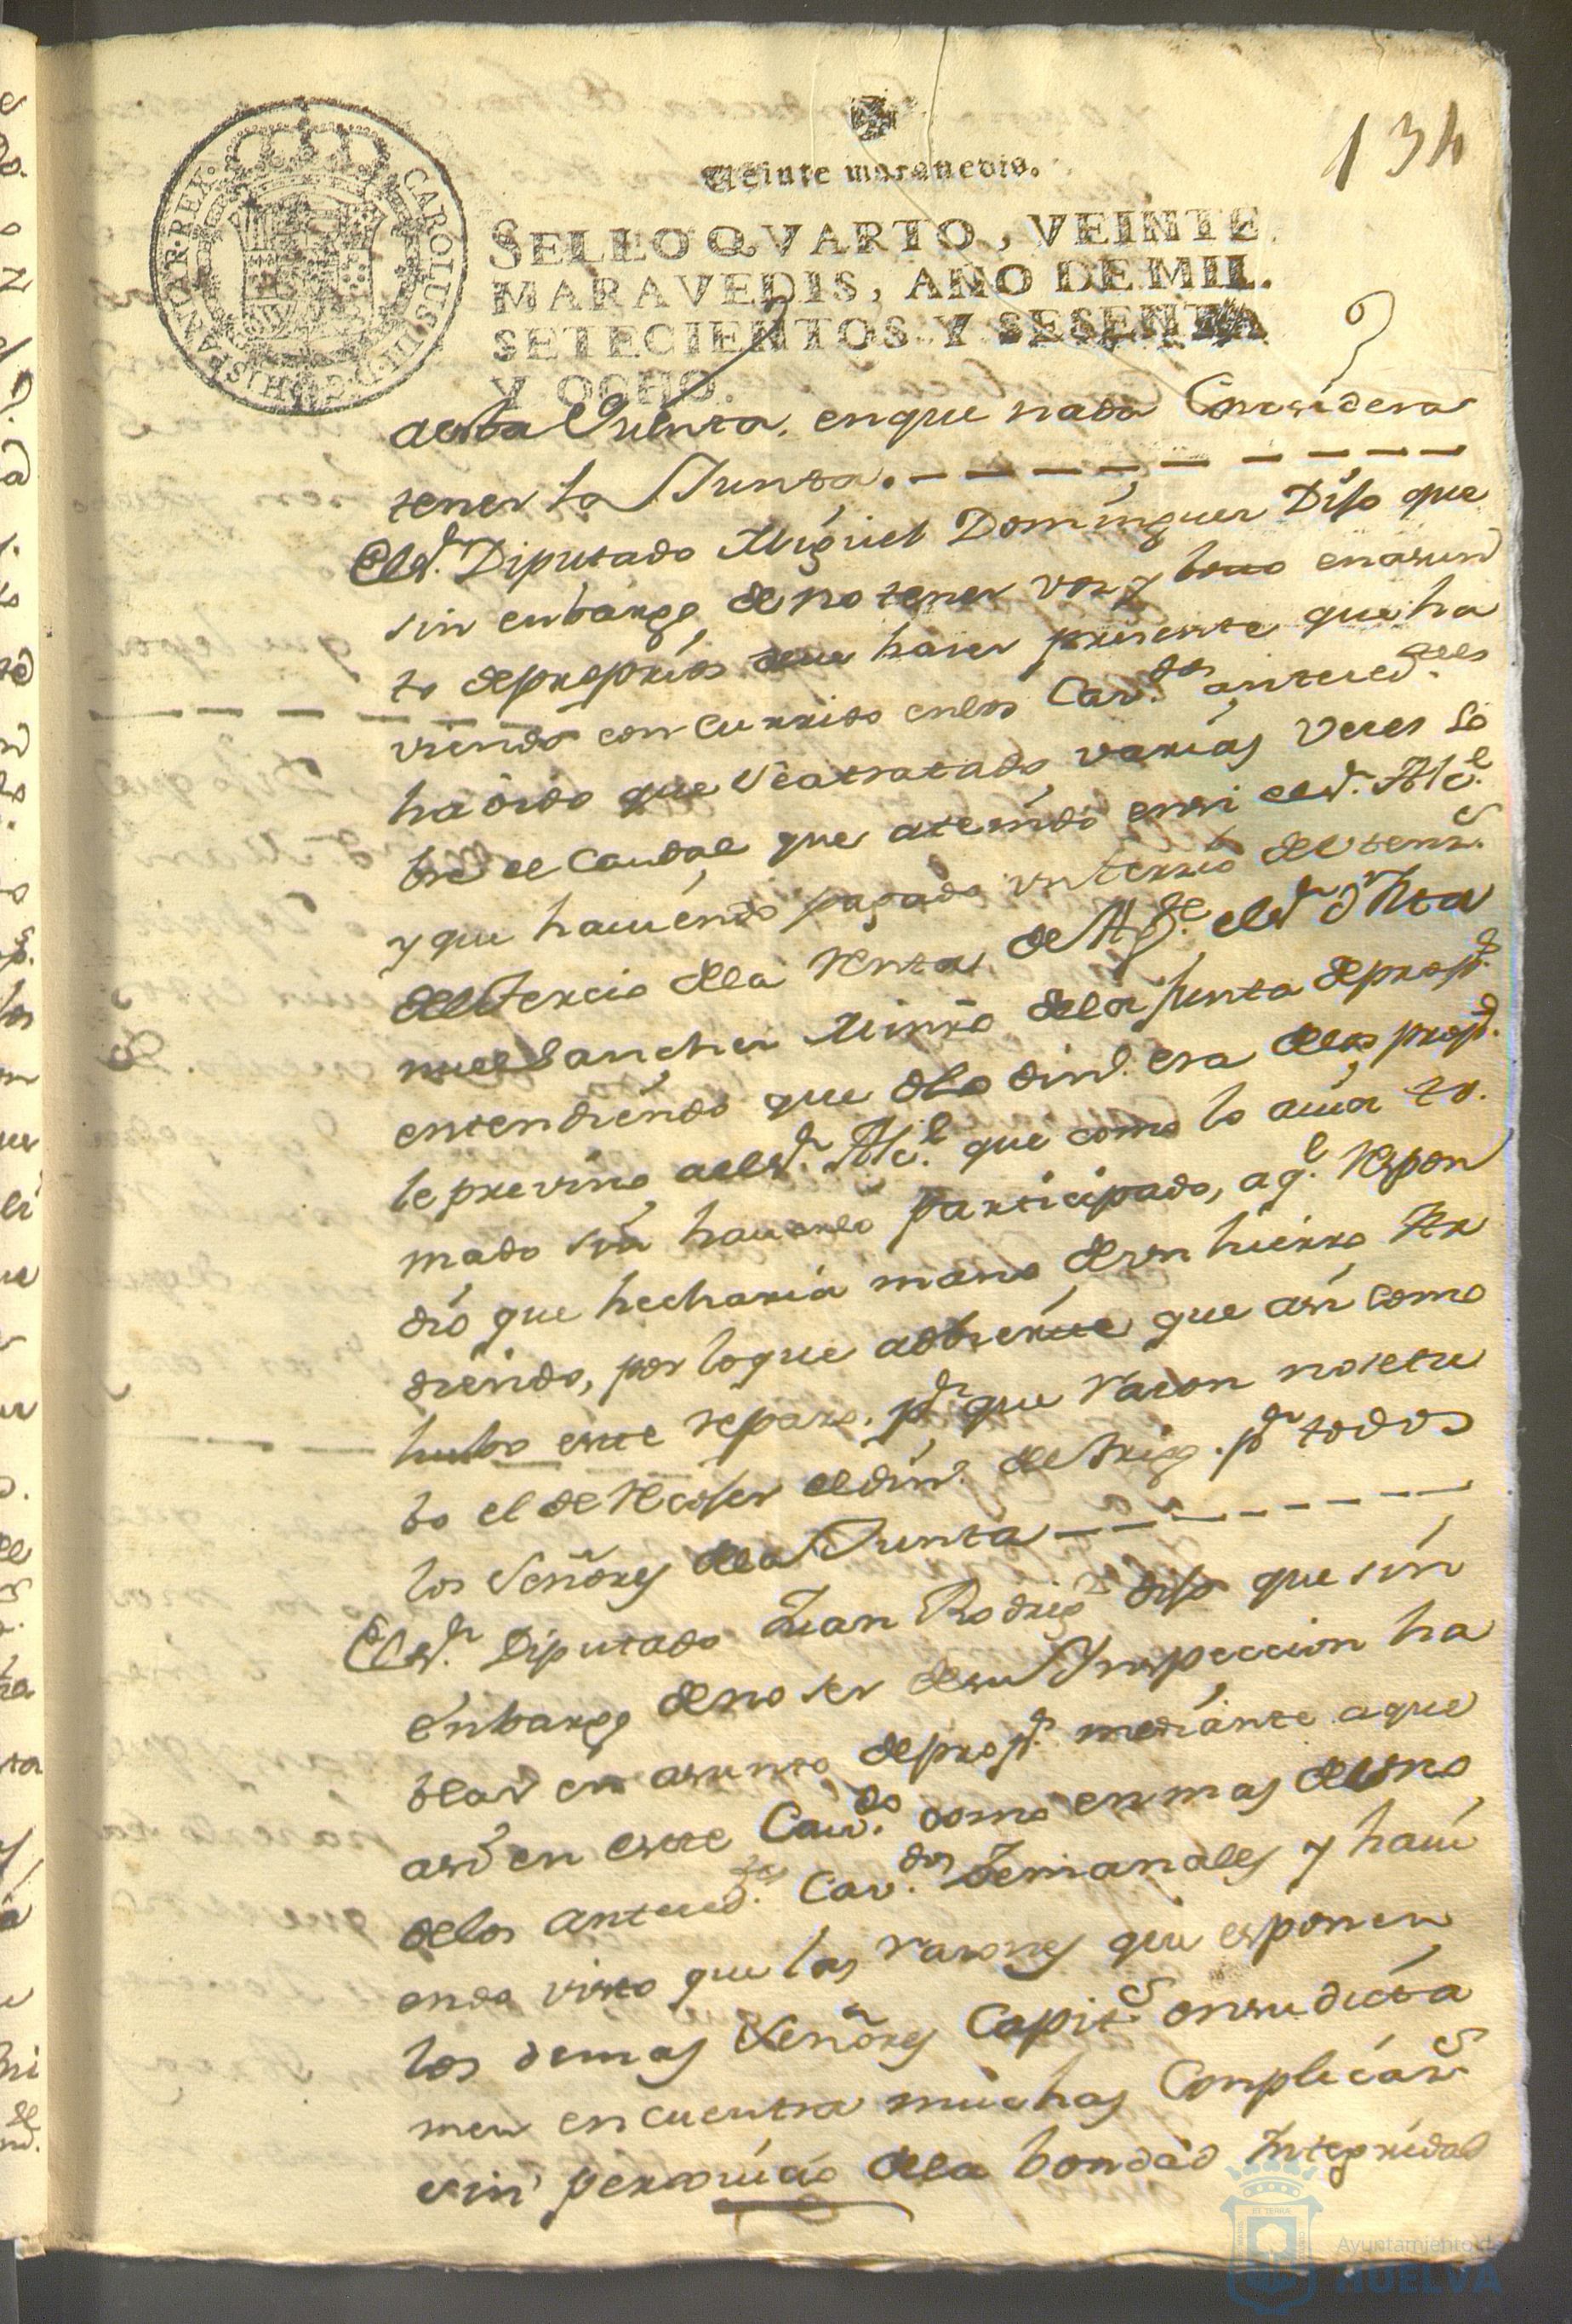 134
Veinte maravedis.
SELLO QVARTO, VEINTE
MARAVEDIS, AÑO DE MIL.
SETECIENTOS Y SESENTA
Y OCHO.
CAROLUS III D G HISPANIAR REX
aesta Quenta, enque nada Considera
tener la Junta.
El Sr. Diputado Miguel Dominguez Dijo que
sin enbargo de no tener voz y boto enasun
to depropios deve hacer presente que ha
viendo concurrido enlos Cavdos. anteced.tes
ha oido que seatratado varias veces so
bre el Caudal que atenido ensi el Sr. Alc.e
y que haviendo pagado un tercio
del tercio dela Renta de Ag.te el Sr. Dn. Ma
nuel Sanchez Minro. dela Junta deprop.s
entendiendo que dho din.o era delos prop.s
le previno a el Sr. Alc.e que como lo avia to.
mado sin haverlo participado, a q.l Respon
dio que hecharia mano de un hierro Ar
diendo, por loque adbierte que asi como
hubo este reparo. pr. que razon nosetu
bo el de Recojer eldin.o del trigo. pr. todos
los Señores dela Junta
El Sr. Diputado Juan Rodrig.z dijo que sin
enbargo deno ser desu Inspeccion ha
blar en asunto deprop.s mediante aque
asi en este Cavdo. como en mas deuno
delos anteced.tes Cavdos. Semanales y havi
endo visto que las razones que esponen
los demas Señores Capit.s ensu dicta
men encuentra muchas Complicac.s
sin perjuicio dela bondad Integridad
Ayuntamiento de
HUELVA